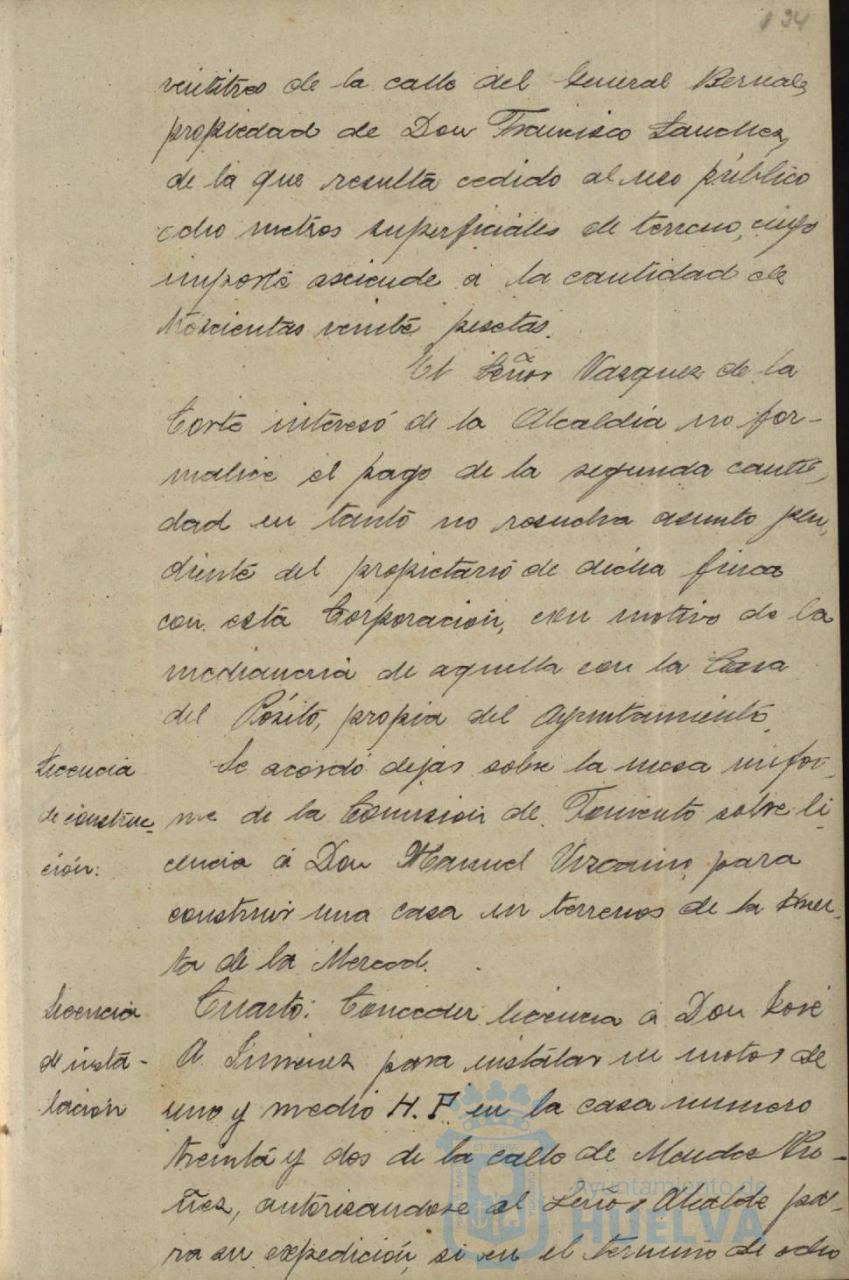 134
veintitres de la calle del General Bernal,
propiedad de Don Francisco Sanchez,
de la que resulta cedido al uso público
ocho metros superficiales de terreno, cuyo
importe asciende a la cantidad de
trescientas veinte pesetas.
El Señor Vazquez de la
Corte interesó de la Alcaldia no for-
malice el pago de la segunda canti-
dad en tanto no resuelva asunto pen-
diente del propietario de dicha finca
con esta Corporacion, con motivo de la
medianeria de aquella con la Casa
del Pósito, propia del Ayuntamiento.
Licencia
de construc-
ción.
Se acordó dejar sobre la mesa infor-
me de la Comision de Fomento sobre li-
cencia á Don Manuel Vizcaino, para
construir una casa en terrenos de la Huer-
ta de la Merced.
Licencia
de insta-
lación
Cuarto: Conceder licencia a Don José
A. Jimenez para instalar un motor de
uno y medio H.P. en la casa numero
treinta y dos de la calle de Mendez Nu-
ñez, autorizandose al Señor Alcalde pa-
ra su expedición, si en el termino de ocho
Ayuntamiento de
HUELVA